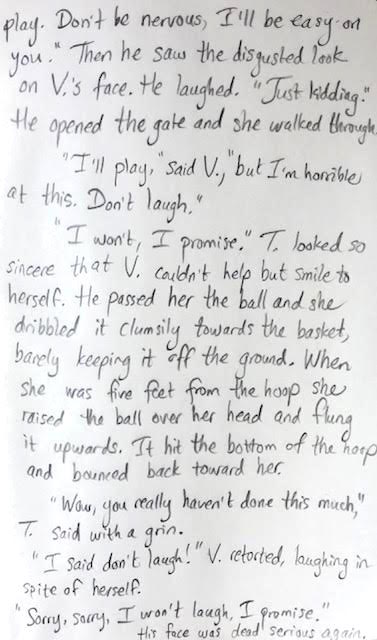 play. Don't be nervous, I'll be easy on
you." Then he saw the disgusted look
on V.'s face. He laughed. "Just kidding."
He opened the gate and she walked through.
"I'll play," said V., "but I'm horrible
at this. Don't laugh."
"I won't, I promise." T. looked so
sincere that V. couldn't help but smile to
herself. He passed her the ball and she
dribbled it clumsily towards the basket,
barely keeping it off the ground. When
she was five feet from the hoop she
raised the ball over her head and flung
it upwards. It hit the bottom of the hoop
and bounced back toward her.
"Wow, you really haven't done this much,"
T. said with a grin.
"I said don't laugh!" V. retorted, laughing in
spite of herself.
"Sorry, sorry, I won't laugh, I promise."
His face was dead serious again.